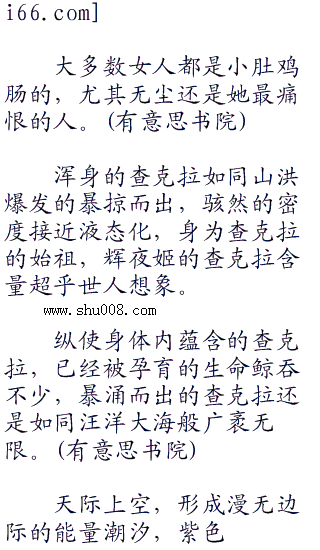 i66.com]
大多数女人都是小肚鸡
肠的，尤其无尘还是她最痛
恨的人。(有意思书院)
浑身的查克拉如同山洪
爆发的暴掠而出，骇然的密
度接近液态化，身为查克拉
的始祖，辉夜姬的查克拉含
量超乎世人想象。
www.shu008.com
纵使身体内蕴含的查克
拉，已经被孕育的生命鲸吞
不少，暴涌而出的查克拉还
是如同汪洋大海般广袤无
限。(有意思书院)
天际上空，形成漫无边
际的能量潮汐，紫色